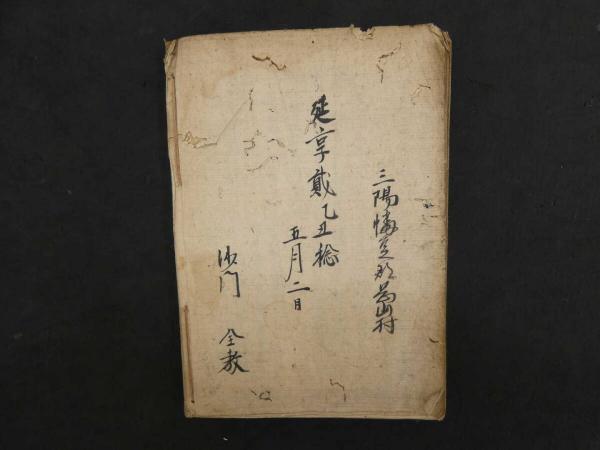 三陽幡豆郡[…]山村
延享貳乙丑稔
五月二日
沙門 全教